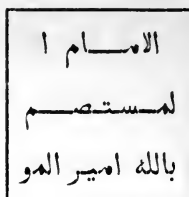 الامام ا
لمستصم
بالله امير المو